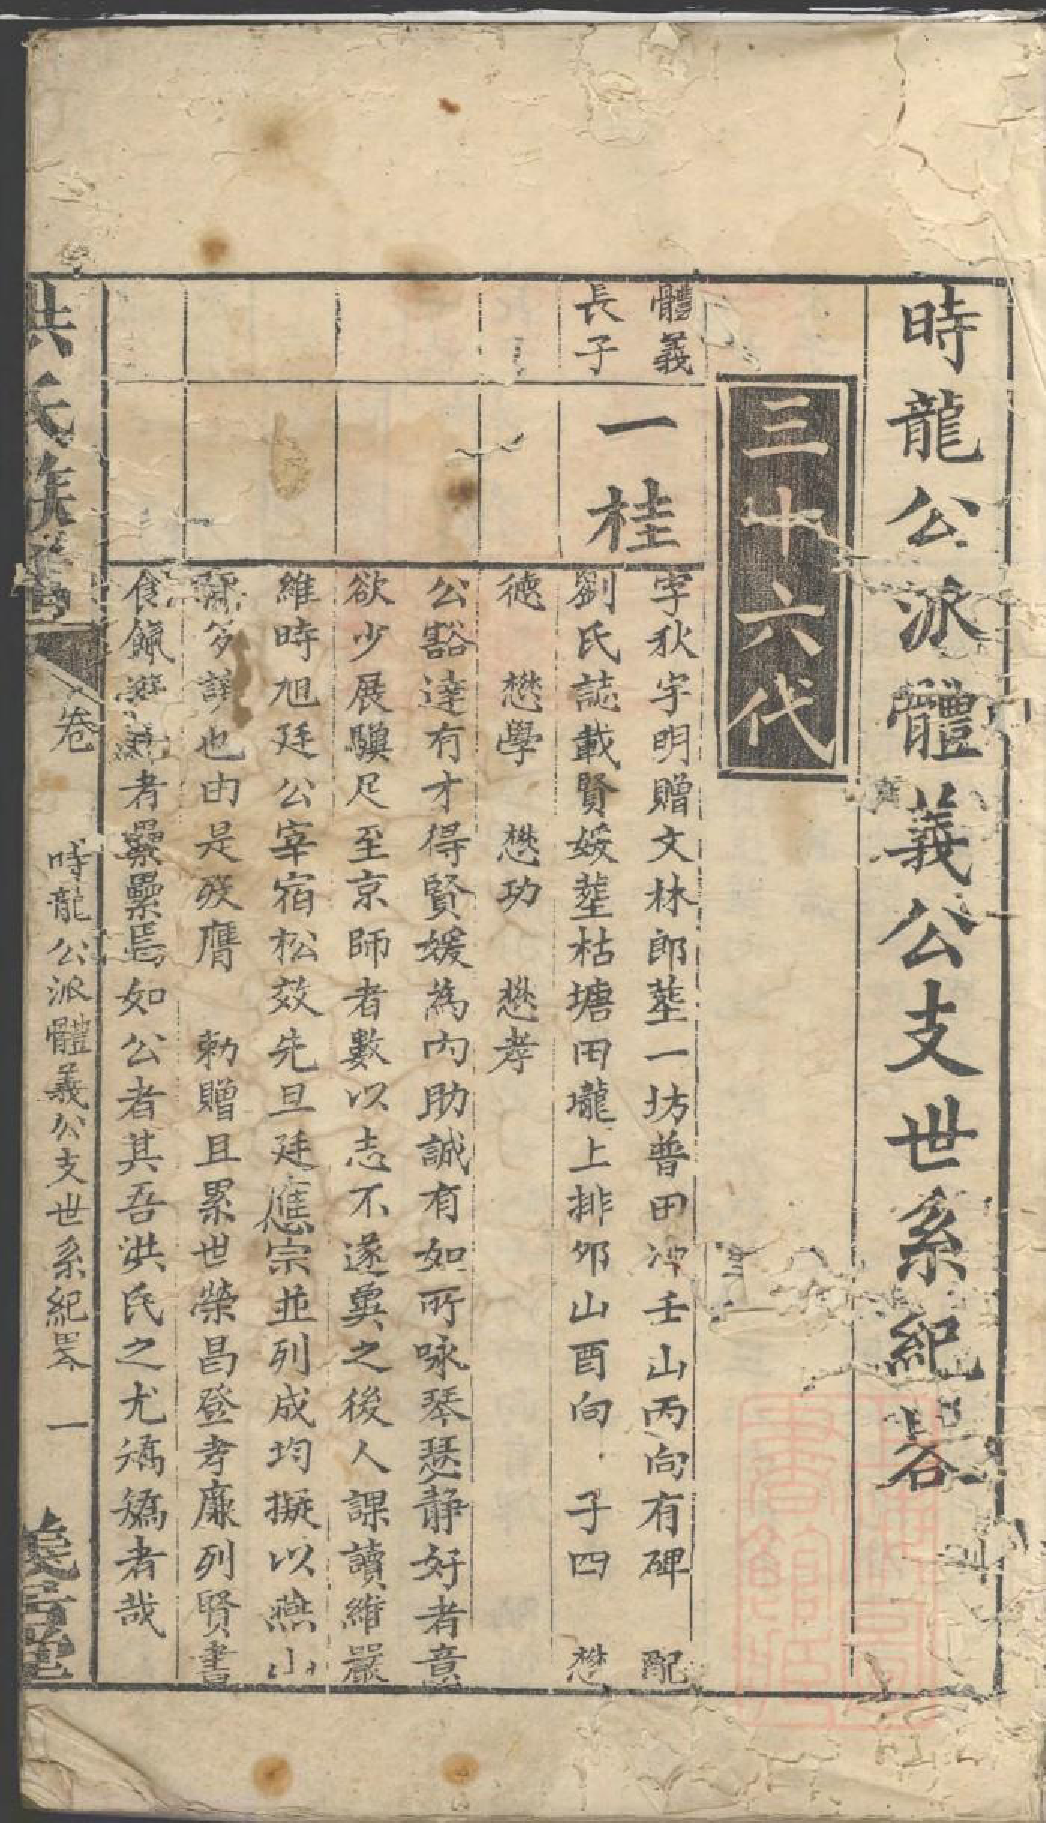 時龍公派體義公支世系紀畧
三十六代
體義
長子
一桂
字狄宇明贈文林郎塟一坊普田冲壬山丙向有碑 配
劉氏誌載賢媛塟枯塘田壠上排夘山酉向 子四 懋
德 懋學 懋功 懋孝
公豁達有才得賢媛為內助誠有如所咏琴瑟静好者意
欲少展驥足至京師者數以志不遂冀之後人課讀維嚴
維時旭廷公宰宿松效先旦廷應宗並列成均擬以燕山
多讓也由是殁膺 勅贈且累世榮昌登孝廉列賢書
食餼遊者纍纍焉如公者其吾洪氏之尤矯矯者哉
洪氏族譜
卷
時龍公派體義公支世系紀畧 一
義居堂
上海圖書館藏